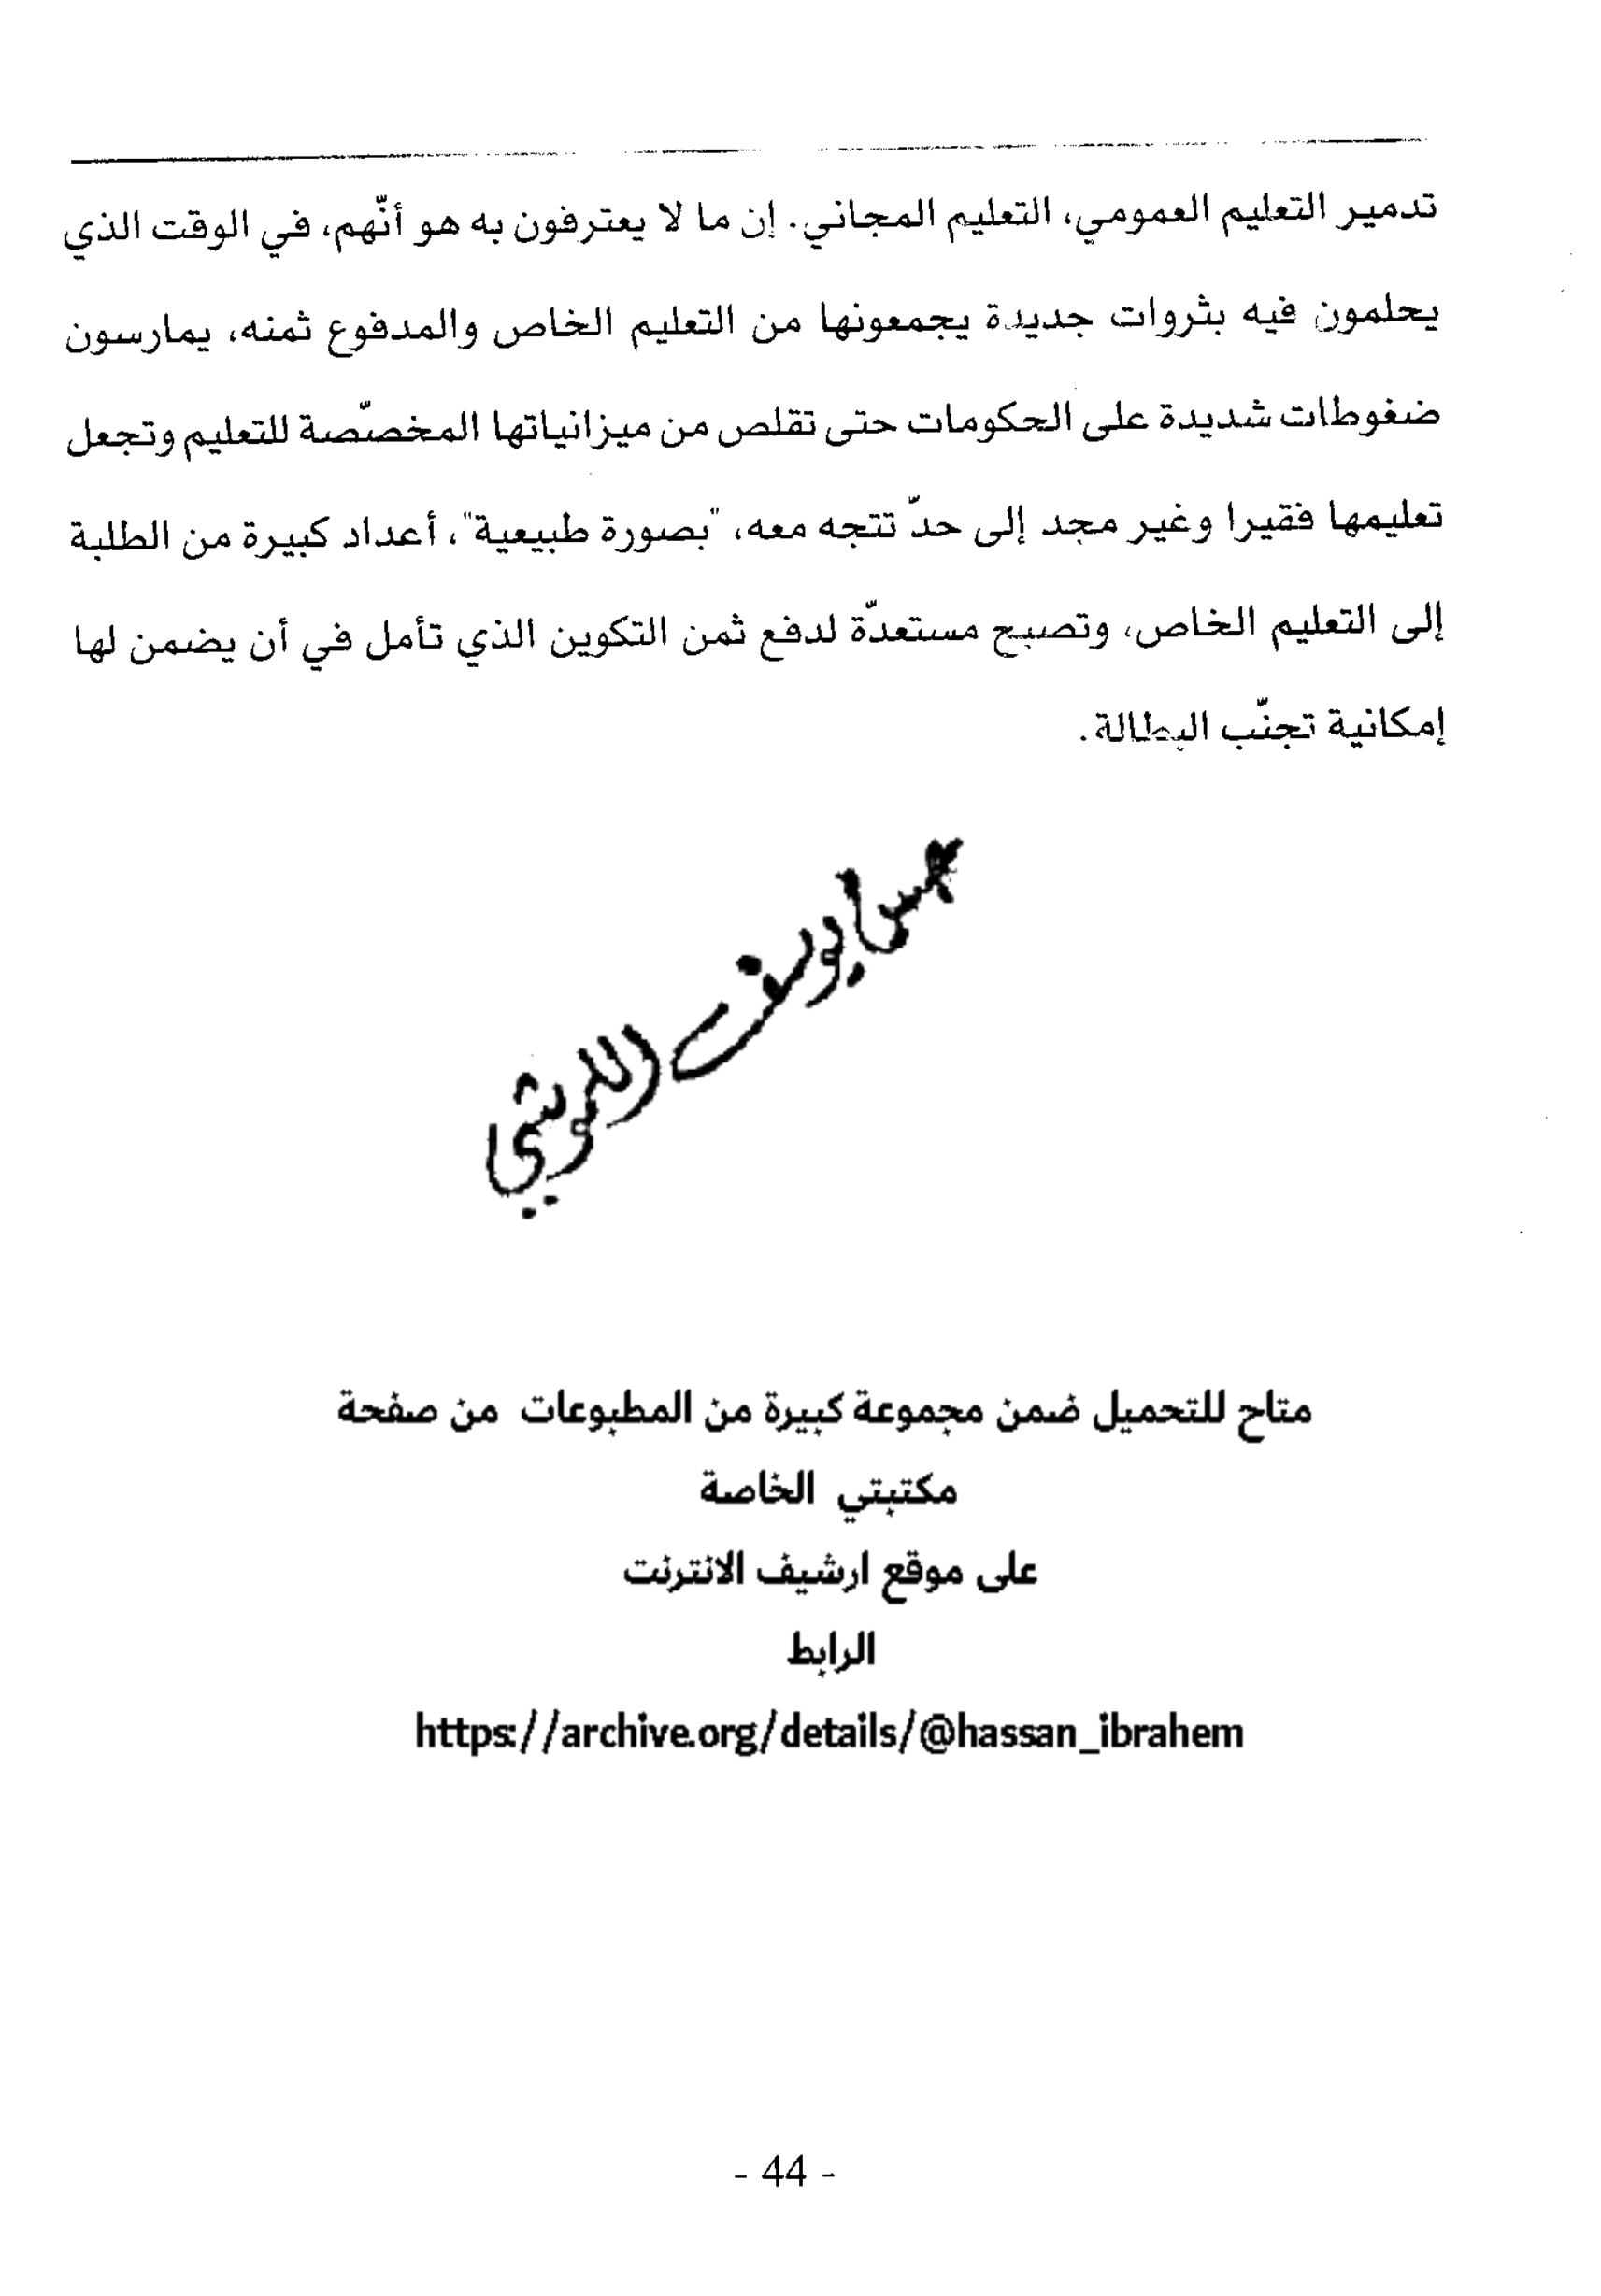 تدمير التعليم العمومي، التعليم المجاني. إن ما لا يعترفون به هو أنّهم، في الوقت الذي
يحلمون فيه بثروات جديدة يجمعونها من التعليم الخاص والمدفوع ثمنه، يمارسون
ضغوطات شديدة على الحكومات حتى تقلص من ميزانياتها المخصّصة للتعليم وتجعل
تعليمها فقيرا وغير مجد إلى حدّ تتجه معه، "بصورة طبيعية"، أعداد كبيرة من الطلبة
إلى التعليم الخاص، وتصبح مستعدّة لدفع ثمن التكوين الذي تأمل في أن يضمن لها
إمكانية تجنّب البطالة.
يوسف
متاح للتحميل ضمن مجموعة كبيرة من المطبوعات من صفحة
مكتبتي الخاصة
على موقع ارشيف الانترنت
الرابط
https://archive.org/details/@hassan_ibrahem
- 44 -